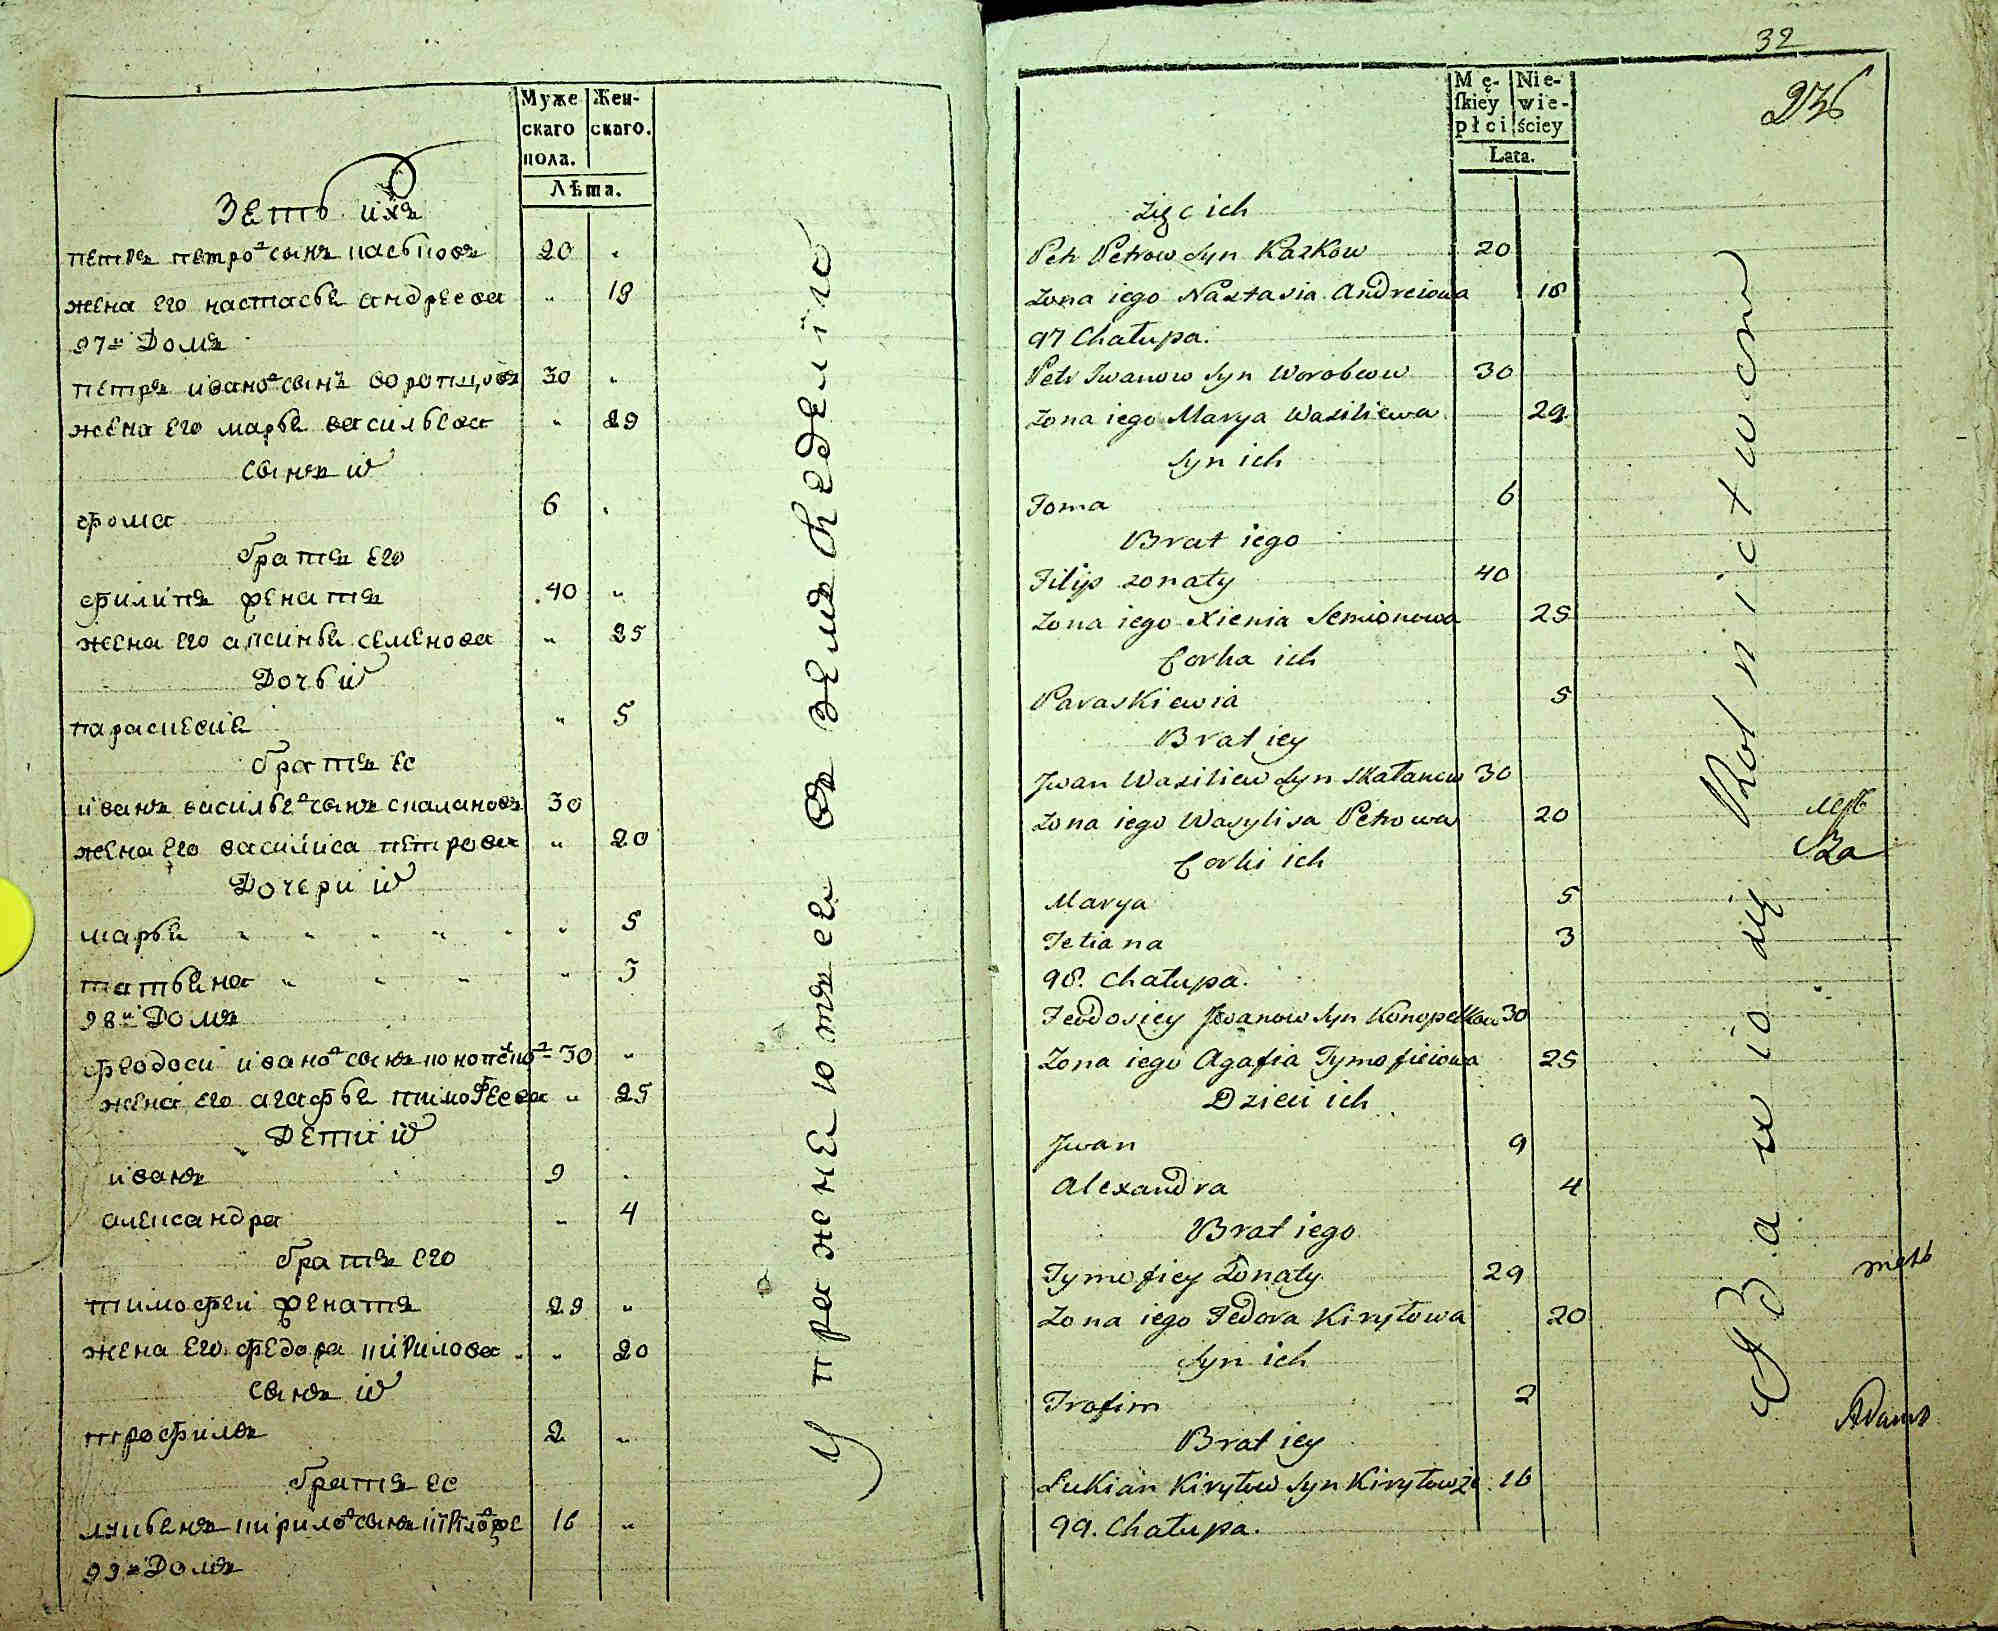 Муже
скаго
пола.
Жен-
скаго.
Лѣта.
Зеть ихъ
петръ петро сынъ каськовъ 20
жена его настасья андреева 19
97й Домъ
петръ ивано сынъ воропцовъ 30
жена его марья васильева 29
сынъ и
фома 6
братъ его
филипъ женатъ 40
жена его аксинья семенова 25
Дочь и
параскевия 5
братъ ее
иванъ василье сынъ скалановъ 30
жена его василиса петрова 20
Дочери и
марья 5
татьяна 3
98й Домъ
феодоси ивано сынъ 30
жена его агафья тимофеева 25
Дети и
иванъ 9
александра 4
братъ его
тимофей женатъ 29
жена его федора кирилова 20
сынъ и
трофимъ 2
братъ ее
лукьянъ кирило сынъ 16
99й Домъ
упражнеются въ земледелию
32
236
Mę-
ſkiey
płci
Nie-
wie-
ściey
Lata.
Zięc ich
Petr Petrow Syn Kazkow 20
Zona iego Naztasia Andreiowa 18
97 Chałupa.
Petr Iwanow Syn Worobcow 30
Zona iego Marya Wasiliewa 29
Syn ich
Foma 6
Brat iego
Filip zonaty 40
Zona iego Xienia Semionowa 25
Corka ich
Paraskiewia 5
Brat iey
Jwan Wasiliew Syn Skałanow 30
Zona iego Wasylisa Petrowa 20
Corki ich
Marya 5
Tetiana 3
98. Chałupa.
Feodosiey Jwanow Syn Konopelkow 30
Zona iego Agafia Tymofieiowa 25
Dzieci ich
Jwan 9
Alexandra 4
Brat iego
Tymofiey Zonaty 29
Zona iego Fedora Kiryłowa 20
Syn ich
Trofim 2
Brat iey
Łukian Kiryłow Syn Kiryłowże 16
99. Chałupa.
Bawio się Rolnictwem
За
Адамъ